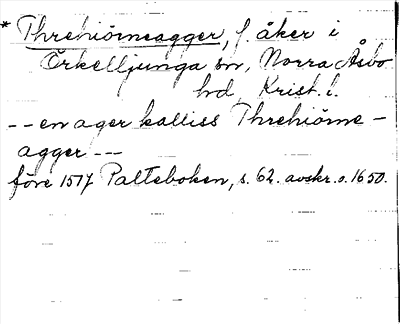 * Threhiörneagger, f. åker i
Örkelljunga sn, Norra Åsbo
hd, Krist. l.
-- en ager kalliss Threhiörne-
agger ---
före 1517 Palteboken, s. 62. avskr. o. 1650.